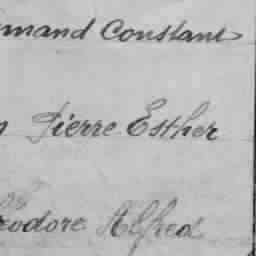 mand Constant
Pierre Esther
eodore Alfred